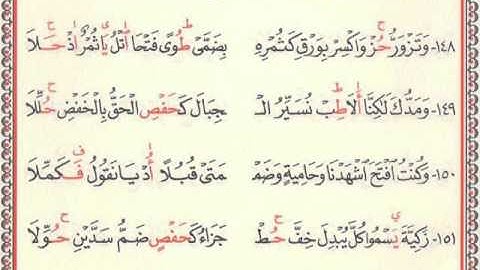 ١٤٨- وَتَزْوَرُّ حُزْ وَاكْسِرْ بِوَرْقِ كَثُمْرِهِ بِضَمَّىْ طُوًى فَتْحًا اتْلُ يَا ثُمْرُ إِذْ حَلَا
١٤٩- وَمَدُّكَ لَكِنَّا أَلَا طِبْ نُسَيِّرُ الْـ جِبَالَ كَحَفْصِ الْحَقُّ بِالْخَفْضِ حُلِّلَا
١٥٠- وَكُنْتَ افْتَحَ اشْهَدْنَا وَحَامِيَةٍ وَضَمْـ مَتَىْ قُبُلًا أُدْ يَا نَقُولُ فَكَمِّلَا
١٥١- زَكِيَّةَ يَسْمُو كُلَّ يُبْدِلَ خِفَّ حُطْ جَزَاءُ كَحَفْصٍ ضَمُّ سَدَّيْنِ حُوِّلَا